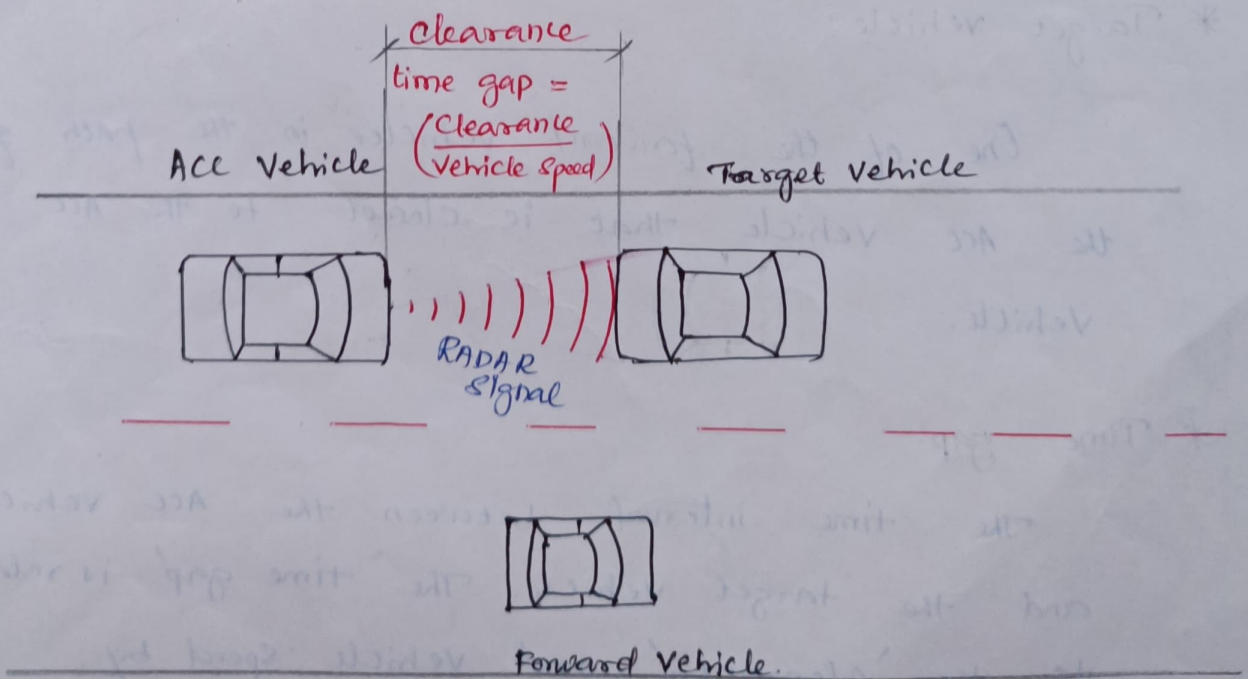 Clearance
time gap =
(Clearance / Vehicle Speed)
Acc Vehicle
Target Vehicle
RADAR
Signal
Forward Vehicle.